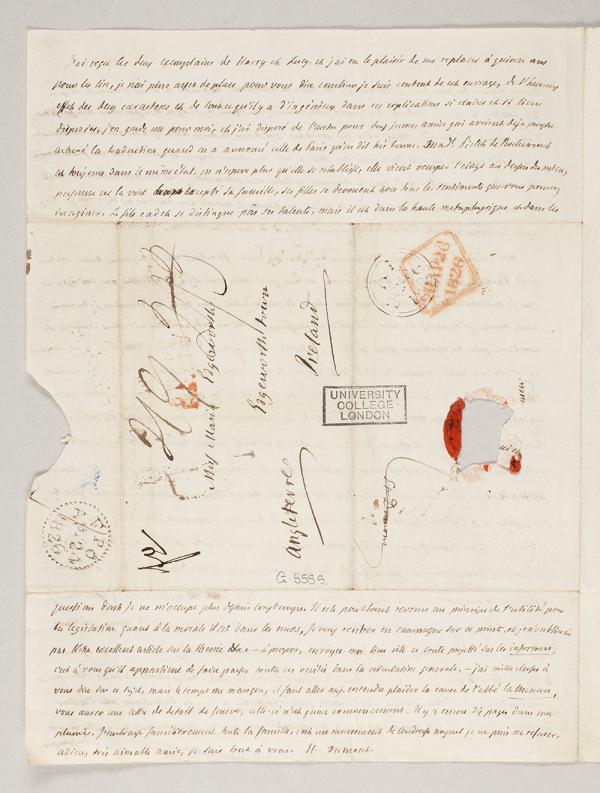 J'ai reçu les deux exemplaires de Harry et Lucy, et j'ai eu le plaisir de me replacer à quinze ans
pour les lire, je n'ai plus assez de place pour vous dire combien je suis content de cet ouvrage, de l'heureux
effet des deux caractères et de tout ce qu'il y a d'ingénieux dans ces explications si claires et si bien
disposées, j'en garde un pour moi, et j'ai disposé de l'autre pour deux jeunes amies qui avoient déjà presque
achevé la traduction quand on a annoncé celle de Paris qu'on dit très bonne. Mad. Pictet de Rochemont
est toujours dans le même état, on n'espère plus qu'elle se rétablisse, elle vient occuper l'étage au dessous du mien,
personne ne la voit excepté sa famille, ses filles se dévouent avec tous les sentiments que vous pouvez
imaginer. Le fils cadet se distingue par ses talents, mais il est dans la haute métaphysique et dans les
Miss Maria Edgeworth
Edgeworthtown
Ireland
Angleterre
1826
UNIVERSITY
COLLEGE
LONDON
APO
1826
G. 5555.
questions dont je ne m'occupe plus depuis longtemps. Il est pourtant revenu au principe de l'utilité pour
la législation quant à la morale il est dans les nues, je veux rentrer en campagne sur ce point, et je n'oublierai
pas excellent article sur la théorie — à propos, envoyez moi bien vite ce conte projetté sur les informers,
c'est à vous qu'il appartient de faire passer toutes ces vérités dans la circulation generale. — j'ai mille choses à
vous dire sur ce sujet, mais le temps me manque, il faut aller entendre plaider la cause de l'abbé la Mennais,
vous aurez une lettre de detail de Geneve, celle-ci n'est qu'un commencement. Il y a encore dix pages dans ma
plume. J'embrasse familièrement toute la famille, c'est un mouvement de tendresse auquel je ne puis me refuser.
adieu, très aimable amie, je suis tout à vous. Et. Dumont.